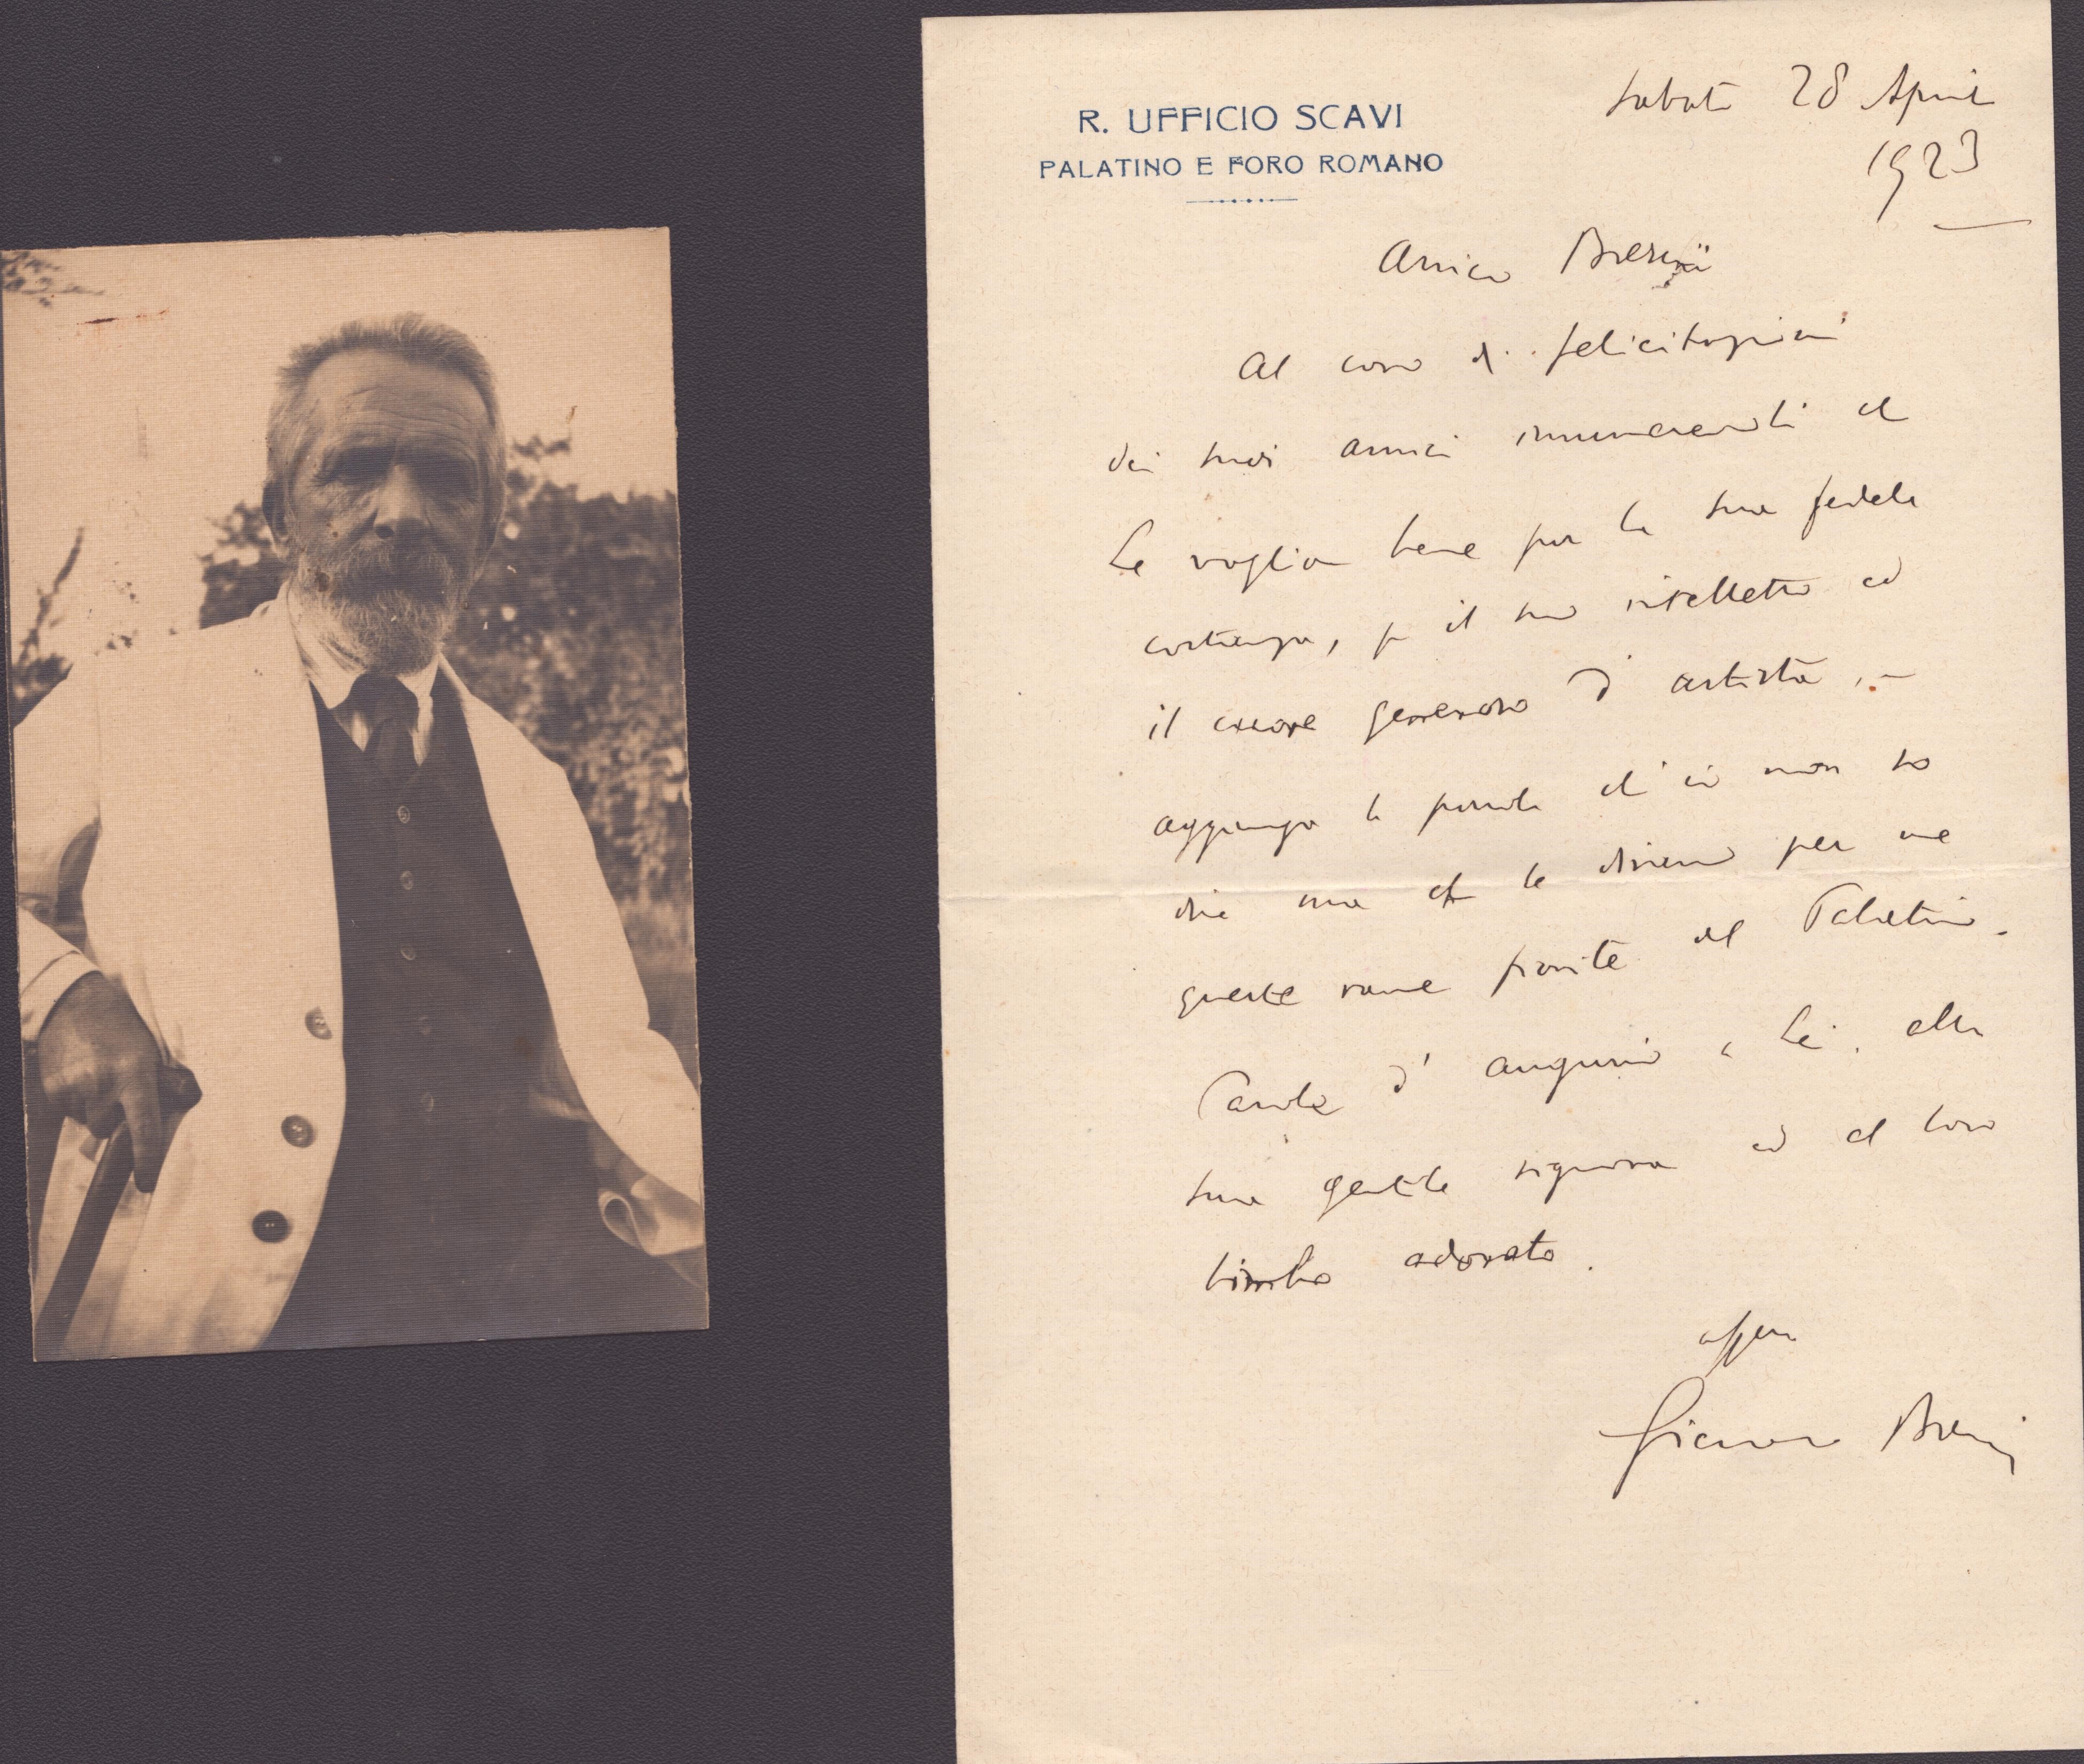 R. UFFICIO SCAVI
PALATINO E FORO ROMANO
Sabato 28 Aprile
1923
Amico
Al coro di felicitazioni
dei suoi amici innumerevoli che
Le vogliono bene per la sua fedele
costanza, per il suo intelletto ed
il cuore generoso d'artista, -
aggiungo la parola ch'io non so
dire ma che le diranno per me
queste rame fiorite del Palatino.
Parola d'augurio a Lei, alla
sua gentile signora ed al loro
bimbo adorato.
Giacomo Boni